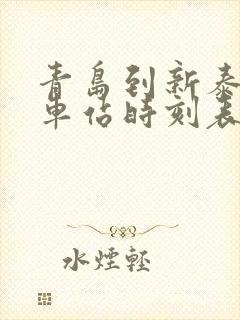 青島到新泰
車站時刻表
水煙輕